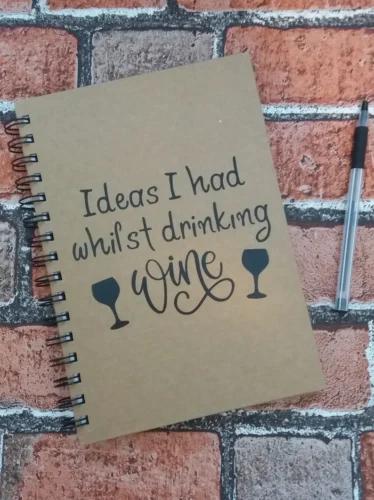 Ideas I had
whilst drinking
wine